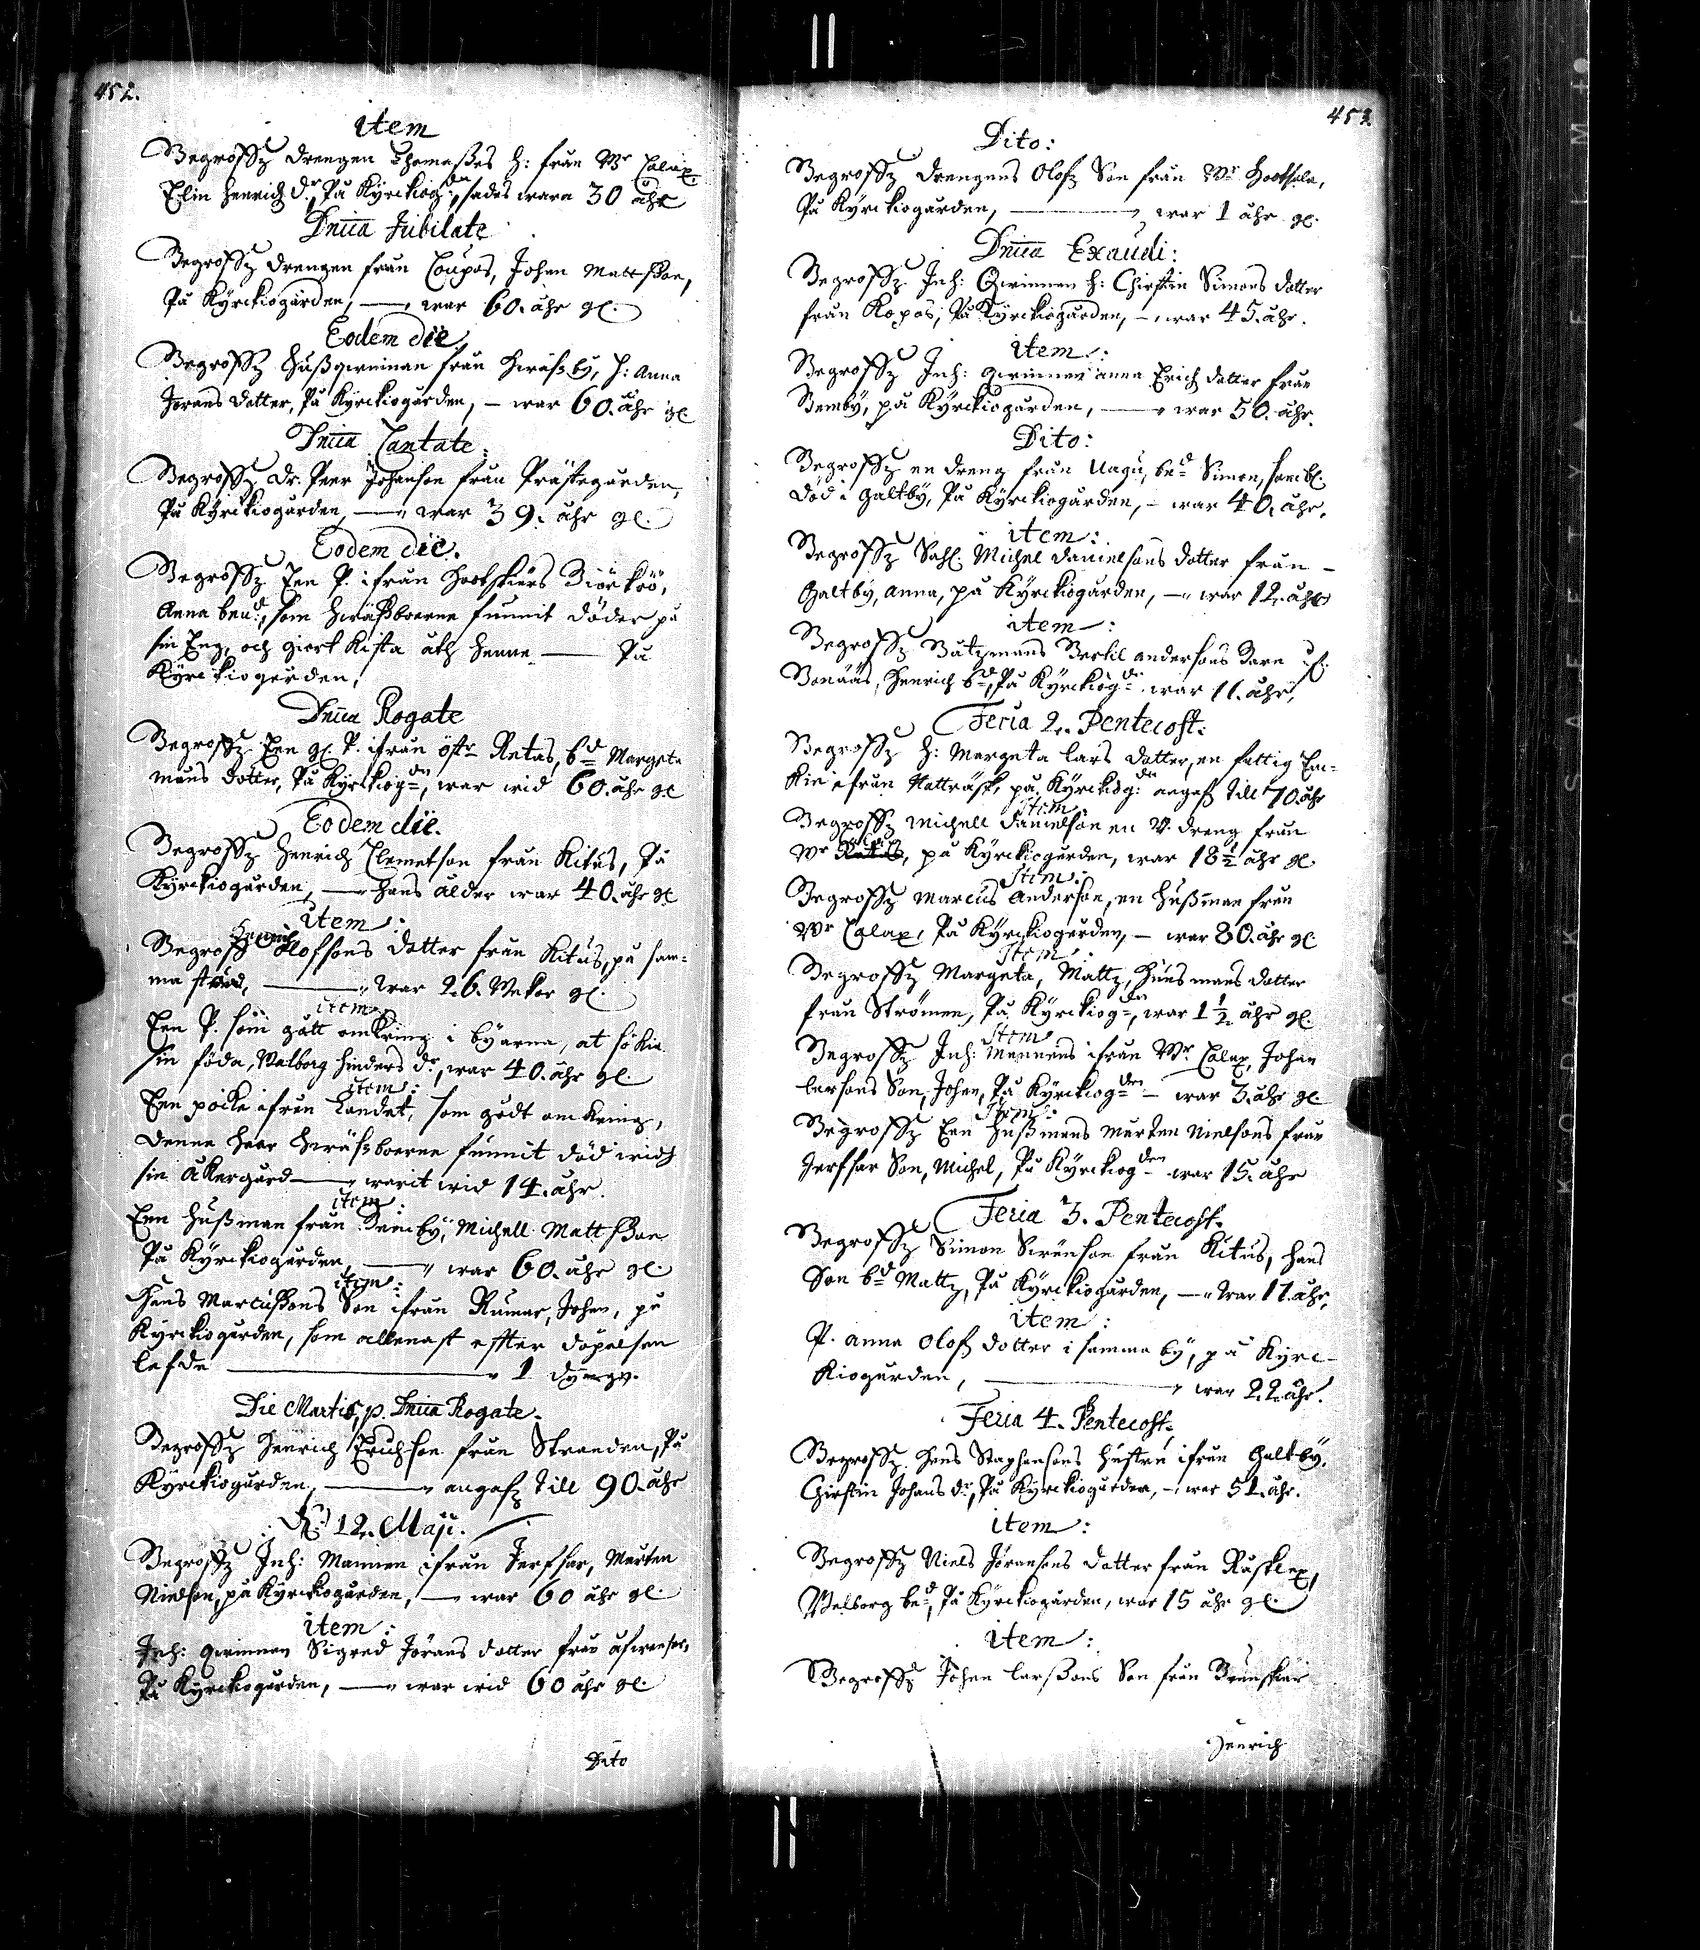 452.
item
Begrofz drengen Thomaßes h: från Wr Calax
Elin Henrich dr, På Kyrckiogdn, sades wara 30 åhr
Dnica Jubilate
Begrofz drengen från Coupos, Johan Mattßon,
På Kyrckiogården, — war 60. åhr gl.
Eodem die
Begrofz hußqwinnan från Hwäßby, h: Anna
Jörans dotter, På Kyrckiogården, — war 60. åhr gl
Dnica Cantate:
Begrofz dr. Peer Johanson från Prästegården,
På Kyrckiogården, — war 39. åhr gl.
Eodem die.
Begrofz Een P. ifrån Biörkö,
Anna bend, som Hwäßboerne funnit döder på
sin Eng, och giort kista åth henne — På
Kyrckiogården,
Dnica Rogate
Begrofz Een gl P. ifrån östr Retas, bd Margeta
måns dotter, På Kyrckiogdn, war wid 60. åhr gl
Eodem die.
Begrofz Henrich Clemetson från Kitus, På
Kyrckiogården, — hans ålder war 40. åhr gl
item:
Begrofz Henrich Olofsons dotter från Kitus, på sam-
ma stad, — war 26. Wekor gl.
item
Een P. som gått omkring i byarna, at sökia
sin föda, Walborg Hinders dr, war 40. åhr gl.
item:
Een poike ifrån Landet, som gådt omkring,
denne haar Hwäßboerne funnit död widh
sin Åkergård — warit wid 14. åhr.
item:
Een hußman från Bemby, Michell Mattßon
På Kyrckiogården, — war 60. åhr gl.
item:
Hans Marcußons Son ifrån Rumar, Johan, på
Kyrckiogården, som allenast effter döpelsen
lefde — 1 dyngn.
Die Martis, p. Dnica Rogate.
Begrofz Henrich Erichson från Stranden, På
Kyrckiogården, — angafz till 90. åhr
d. 12. Maji.
Begrofz Inh: Mannen ifrån Jerfsar, Mårten
Nielson, på Kyrckiogården, — war 60 åhr gl.
item:
Inh: qwinnan Sigred Jörans dotter från
På Kyrckiogården, — war wid 60 åhr gl.
Dito
453
Dito:
Begrofz drengens Olofz Son från Wr
På Kyrckiogården, — war 1 åhr gl.
Dnica Exaudi:
Begrofz Inh: Qwinnan h: Chirstin Simons dotter
från Kopos, På Kyrckiogården, — war 45. åhr.
item:
Begrofz Inh: qwinnan anna Erich dotter från
Bemby, på Kyrckiogården, — war 50. åhr.
Dito:
Begrofz en dreng från Uagu, bed Simon, som bl.
död i galtby, På Kyrckiogården, — war 40. åhr.
item:
Begrofz Sahl. Michel danielsons dotter från —
Galtby, anna, på Kyrckiogården, — war 12. åhr
item:
Begrofz Båtzmans Bertil andersons Barn if.
Bonäås, Henrich bd, På Kyrckiogdn war 11. åhr,
Feria 2. Pentecost:
Begrofz h: Margeta lars dotter, en fattig En-
kia ifrån Nötträsk, på Kyrckiogdn angaf till 70. åhr
Item
Begrofz Michell danielson en V. dreng från
Wr, på Kyrckiogården, war 18 ½ åhr gl.
Item:
Begrofz Marcus Anderson, en hußman från
Wr Calax, På Kyrckiogården, — war 80. åhr gl
Item:
Begrofz Margeta, Mattz, Husmans dotter
från Strömen, På Kyrckiogdn, war 1 ½ åhr gl.
Item
Begrofz Inh: Mannens ifrån Wr Calax, Johan
larsons Son, Johan, På Kyrckiogden — war 3. åhr gl.
Item:
Begrofz Een hußmans Mårten Nielsons från
Jerfsar Son, Michel, På Kyrckiogden — war 15. åhr
Feria 3. Pentecost.
Begrofz Simon Sirenson från Kitus, hans
Son bd Mattz, På Kyrckiogården, — war 11. åhr,
item:
P. anna Olofz dotter i samma by, på Kyrc-
kiogården, — war 22. åhr.
Feria 4. Pentecost.
Begrofz Hans Staphansons hustru ifrån Galtby.
Chirstin Johans dr, På Kyrckiogården, — war 51. åhr.
item:
Begrofz Niels Jöransons dotter från
Walborg bed, På Kyrckiogården, war 15 åhr gl.
item:
Begrofz Johan larßons Son från Brunskär
Henrich
KODAK SAFETY FILM